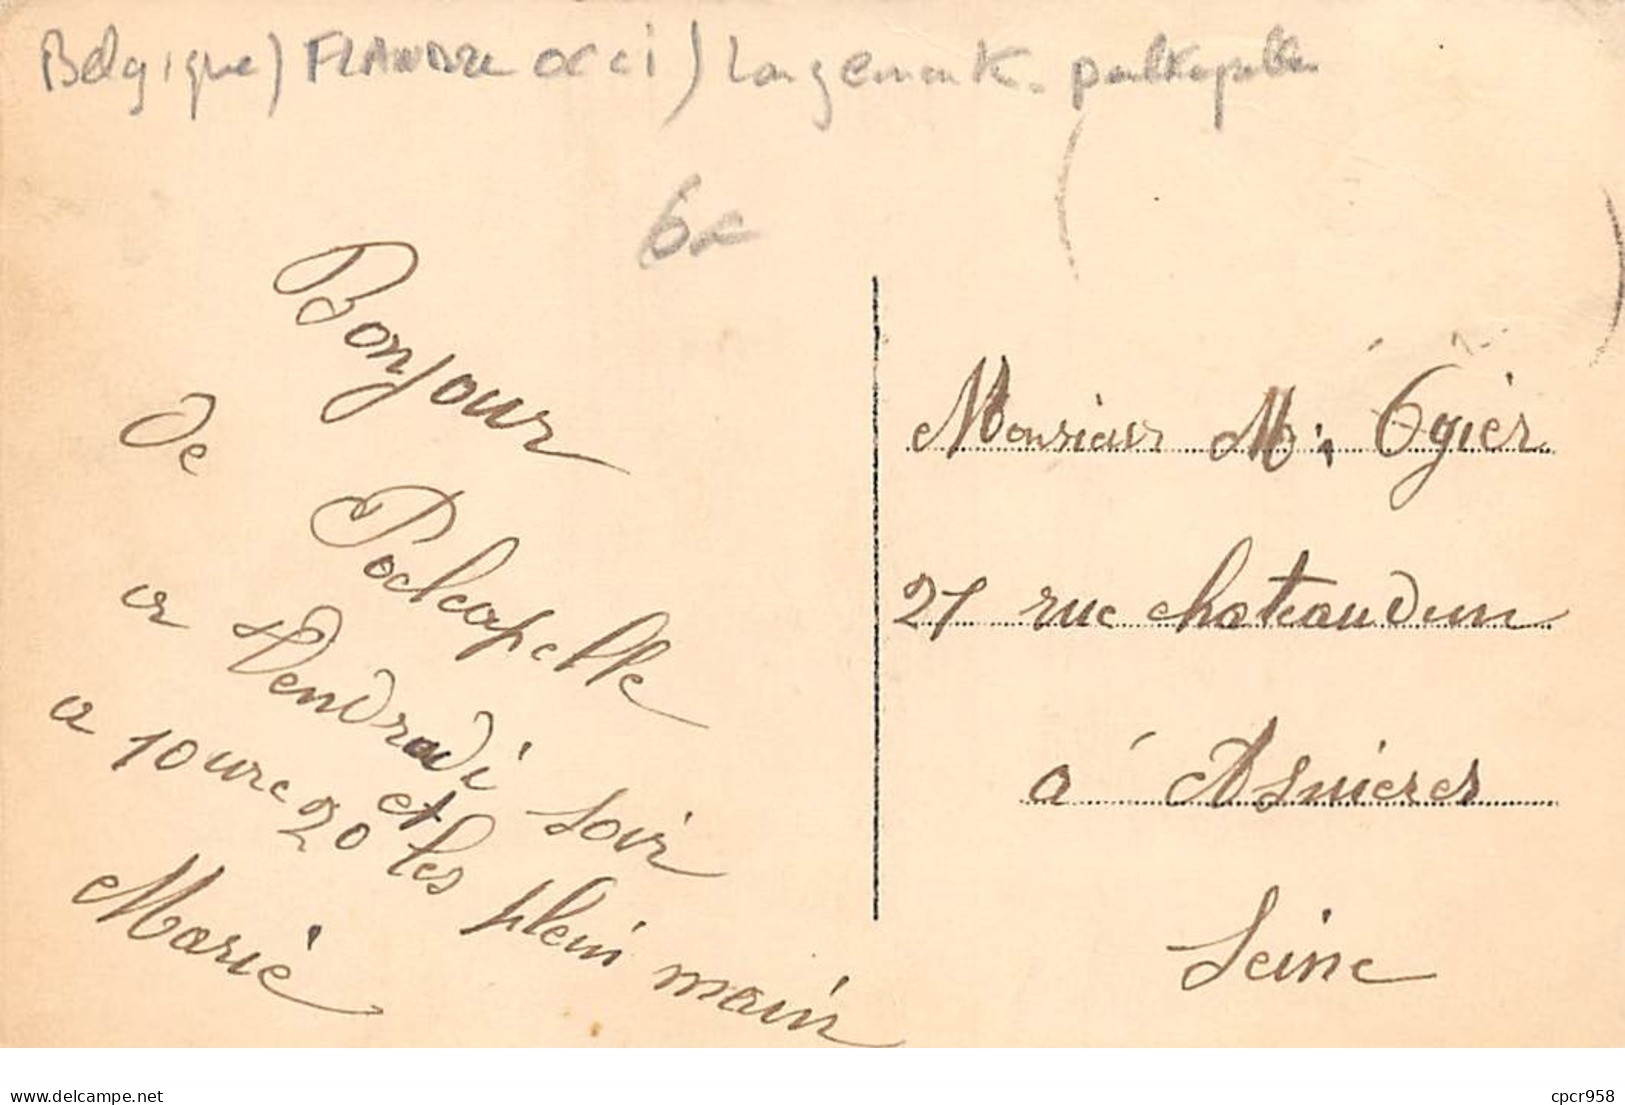 Belgique) FLANDRE occi) Langemark - poelkapelle
6€
Bonjour
De Poelcapelle
a Vendredi soir
a 10 ure 20 et les plein main
Marie
Monsieur M. Ogier
21 rue chateaudun
a Asnieres
Seine
delcampe.net
cpcr958